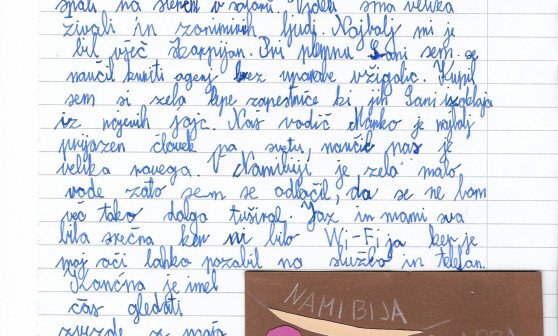 spali na strehi v šotoru. Videli sma velika
živali in zanimivih ljudi. Najbolj mi je
bil všeč škorpijon. Pri plemnu Sani sem se
naučil kuriti agenj brez uporabe vžigalic. Kupil
sem si zela lepe zapestniče ki jih Sani izdelaja
iz nojevih jajc. Naš vodič Marko je najbolj
prijazen človek na svetu, naučil nas je
velika novega. V Namibiji je zela malo
vode zato sem se odlačil, da se ne bom
več tako dolga tuširal. Jaz in mami sva
bila srečna ker ni bilo Wi-Fi ja ker je
moj oči lahko pozabil na službo in telefan.
Končna je imel
čas gledati
zvezde z maja
NAMIBIJA